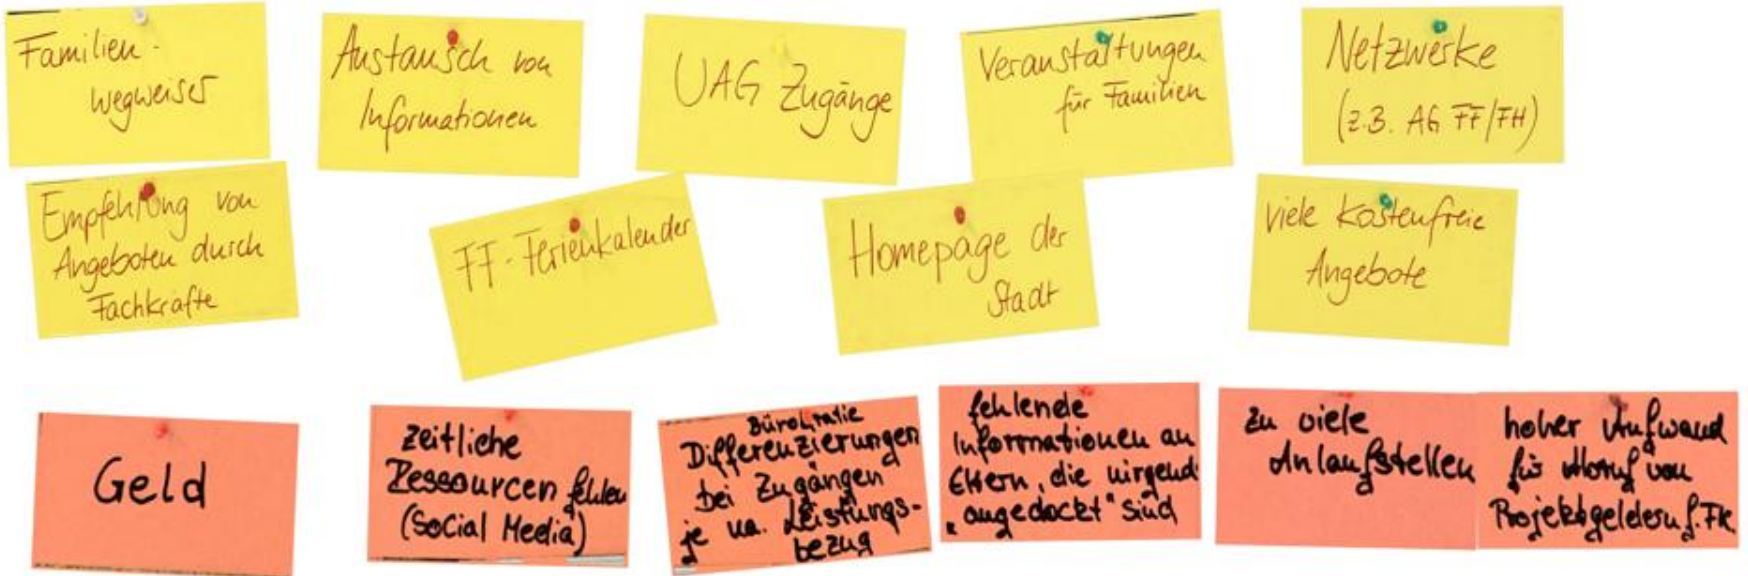 Familien-
wegweiser
Austausch von
Informationen
UAG Zugänge
Veranstaltungen
für Familien
Netzwerke
(z.B. AG FF/FH)
Empfehlung von
Angeboten durch
Fachkräfte
FF-Ferienkalender
Homepage der
Stadt
viele kostenfreie
Angebote
Geld
zeitliche
Ressourcen fehlen
(Social Media)
Bürokratie
Differenzierungen
bei Zugängen
je na. Leistungs-
bezug
fehlende
Informationen an
Eltern, die nirgend
"angedockt" sind
zu viele
Anlaufstellen
hoher Aufwand
für Abruf von
Projektgeldern f. FK